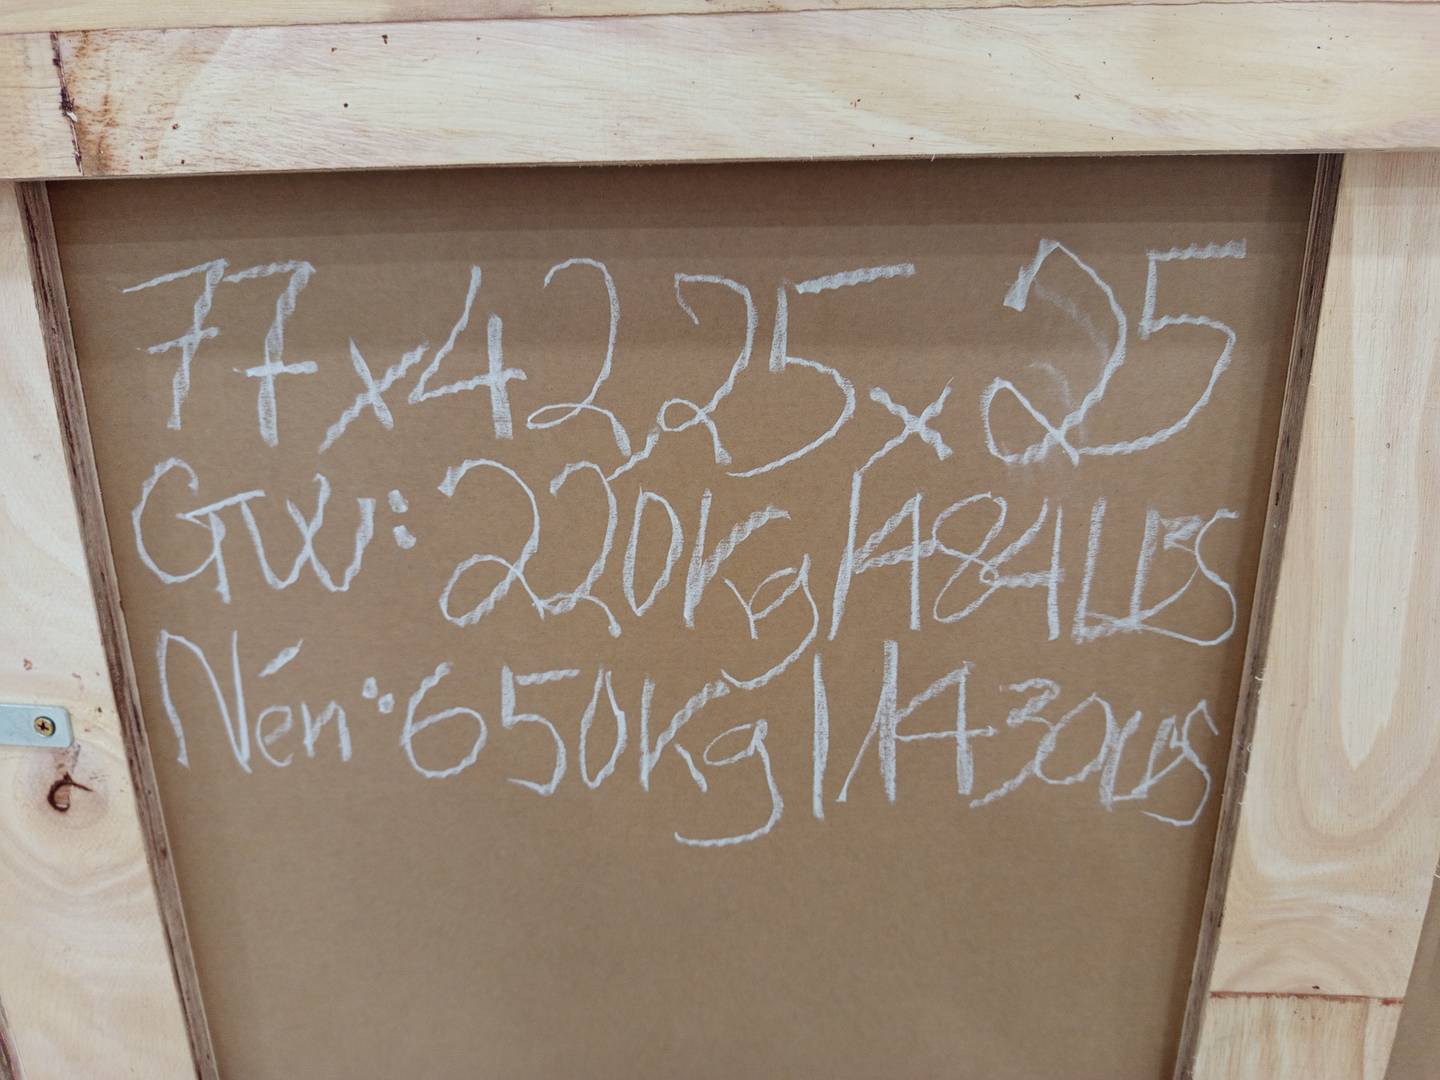 77x42,25x25
GW: 220Kg/484LBS
Nén: 650Kg/1430LBS